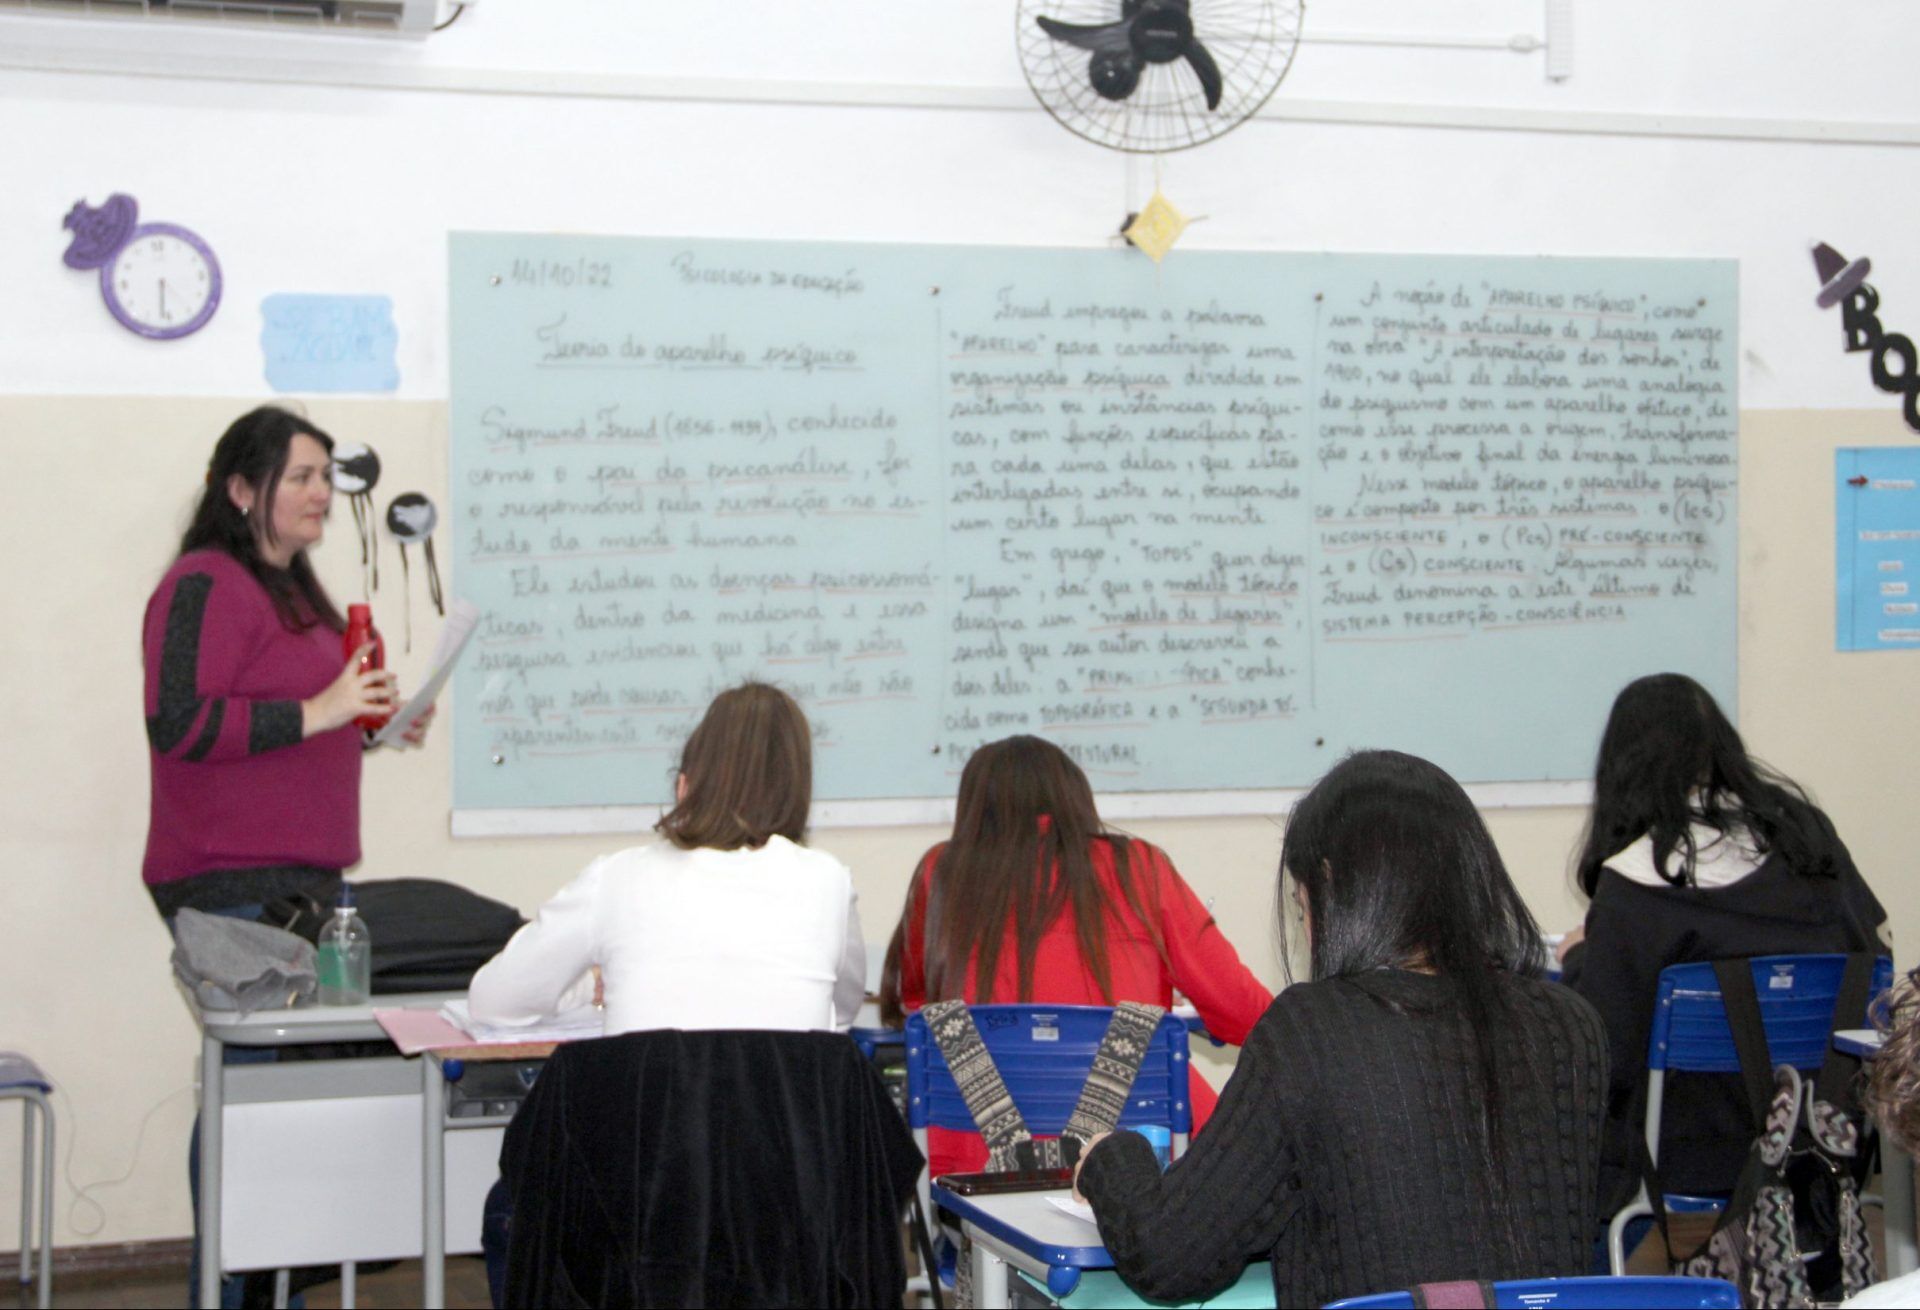 14/10/22 PSICOLOGIA DA EDUCAÇÃO
Teoria do aparelho psíquico
Sigmund Freud (1856-1939), conhecido
como o pai da psicanálise, foi
o responsável pela revolução no es-
tudo da mente humana
Ele estudou as doenças psicossomá-
ticas, dentro da medicina e essa
pesquisa evidenciou que há algo entre
nós que pode causar que não são
aparentemente
Freud empregou a palavra
"APARELHO" para caracterizar uma
organização psíquica dividida em
sistemas ou instâncias psíqui-
cas, com funções específicas pa-
ra cada uma delas, que estão
interligadas entre si, ocupando
um certo lugar na mente.
Em grego, "TOPOS" quer dizer
"lugar", daí que o modelo tópico
designa um "modelo de lugares",
sendo que seu autor descreveu a
dois deles. a "PRIM PICA" conhe-
cida como TOPOGRÁFICA e a "SEGUNDA TÓ-
A noção de "APARELHO PSÍQUICO", como
um conjunto articulado de lugares surge
na obra "A interpretação dos sonhos", de
1900, no qual ele elabora uma analogia
do psiquismo com um aparelho óptico, de
como esse processa a origem, transforma-
ção e o objetivo final da energia luminosa.
Nesse modelo tópico, o aparelho psíqui-
co é composto por três sistemas: o (Ics)
INCONSCIENTE, o (Pcs) PRÉ-CONSCIENTE
e o (Cs) CONSCIENTE. Algumas vezes,
Freud denomina a este último de
SISTEMA PERCEPÇÃO-CONSCIÊNCIA
BOO